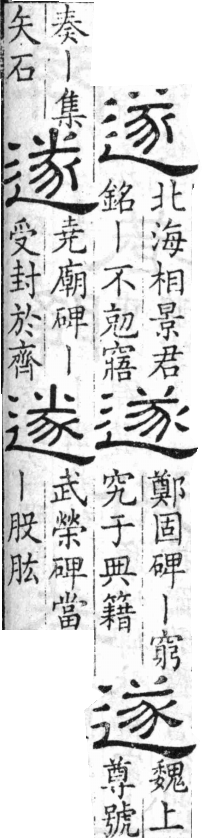 遂
北海相景君
銘丨不剋寤
遂
鄭固碑丨窮
究于典籍
遂
魏上
尊號
奏丨集
矢石
遂
堯廟碑丨
受封於齊
遂
武榮碑當
丨股肱